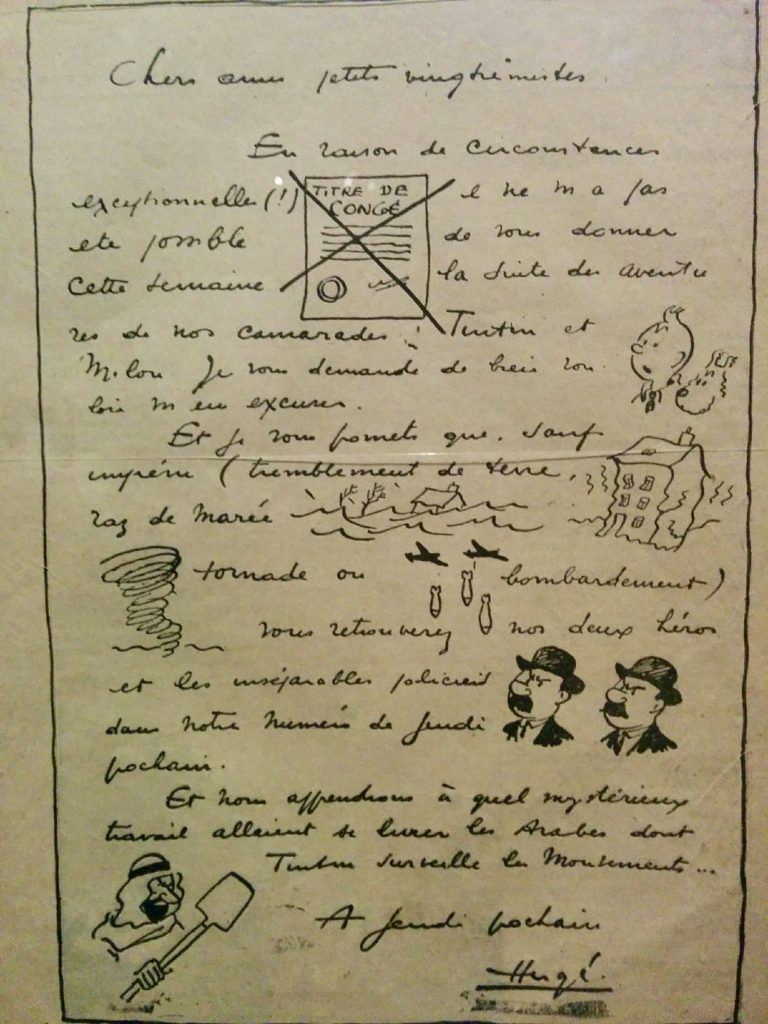 Chers amis petits vingtièmistes
En raison de circonstances
exceptionnelles (!)
TITRE DE
CONGÉ
il ne m'a pas
été possible
de vous donner
cette semaine
la suite des aventu
res de nos camarades : Tintin et
Milou Je vous demande de bien vou
loir m'en excuser.
Et je vous promets que, sauf
imprévu (tremblement de terre,
raz de marée
tornade ou
bombardement)
vous retrouverez
nos deux héros
et les inséparables policiers
dans notre numéro de Jeudi
prochain.
Et nous apprendrons à quel mystérieux
travail allaient se livrer les Arabes dont
Tintin surveille les mouvements...
A Jeudi prochain
Hergé.